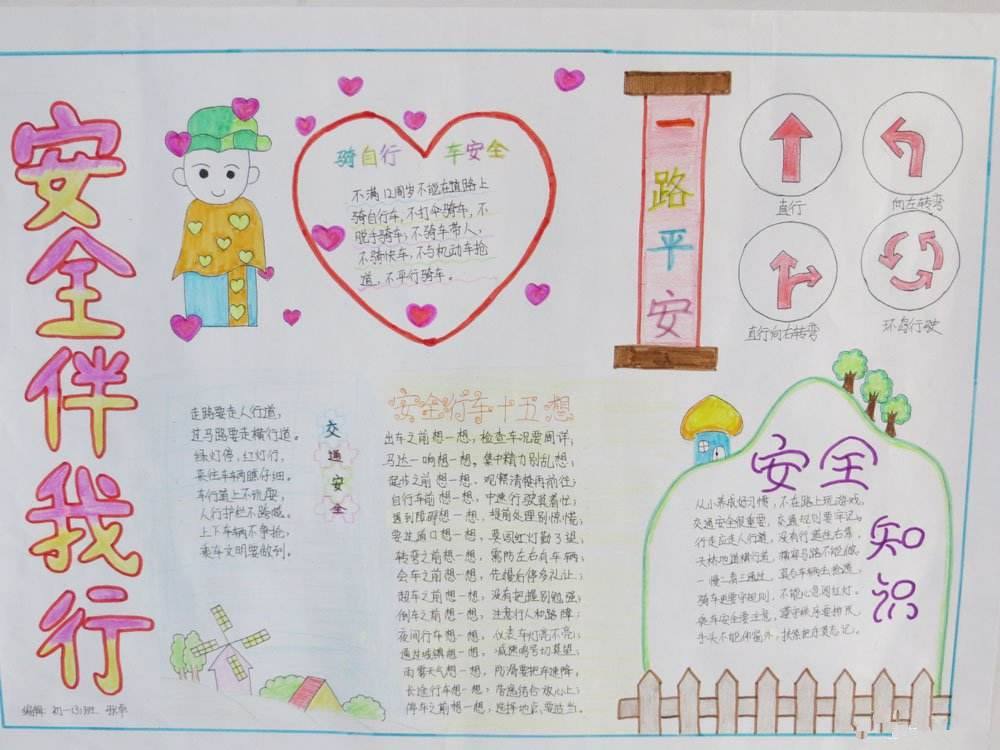 安全伴我行
骑自行车安全
不满12周岁不能在道路上
骑自行车,不打伞骑车,不
脱手骑车,不骑车带人,
不骑快车,不与机动车抢
道,不平行骑车。
一路平安
直行
向左转弯
直行向右转弯
环岛行驶
走路要走人行道,
过马路要走横行道。
绿灯停,红灯行,
来往车辆瞧仔细。
车行道上不玩耍,
人行护栏不跨越。
上下车辆不争抢,
乘车文明要做到。
交通安全
安全行车十五想
出车之前想一想,检查车况要周详;
马达一响想一想。集中精力别乱想;
起步之前想一想,观察清楚再前往;
自行车前想一想,中速行驶莫着忙;
遇到障碍想一想,提前处理别惊慌;
要过道口想一想,莫闯红灯勤了望;
转弯之前想一想,需防左右有车辆;
会车之前想一想,先慢后停多礼让;
超车之前想一想,没有把握别勉强;
倒车之前想一想,注意行人和路障;
夜间行车想一想,仪表车灯亮不亮;
通过城镇想一想,减速鸣号切莫望;
雨雾天气想一想,防滑要把车速降;
长途行车想一想,劳逸结合放心上;
停车之前想一想,选择地点要适当。
安全知识
从小养成好习惯,不在路上玩游戏。
交通安全很重要,交通规则要牢记。
行走应走人行道,没有行道往右靠。
天桥地道横行道,横穿马路不能做。
一慢二看三通过,莫与车辆去抢道。
骑车更要守规则,不能心急闯红灯。
乘车安全要注意,遵守秩序要排队。
手头不能伸窗外,扶紧把手莫忘记。
编辑:初一(3)班